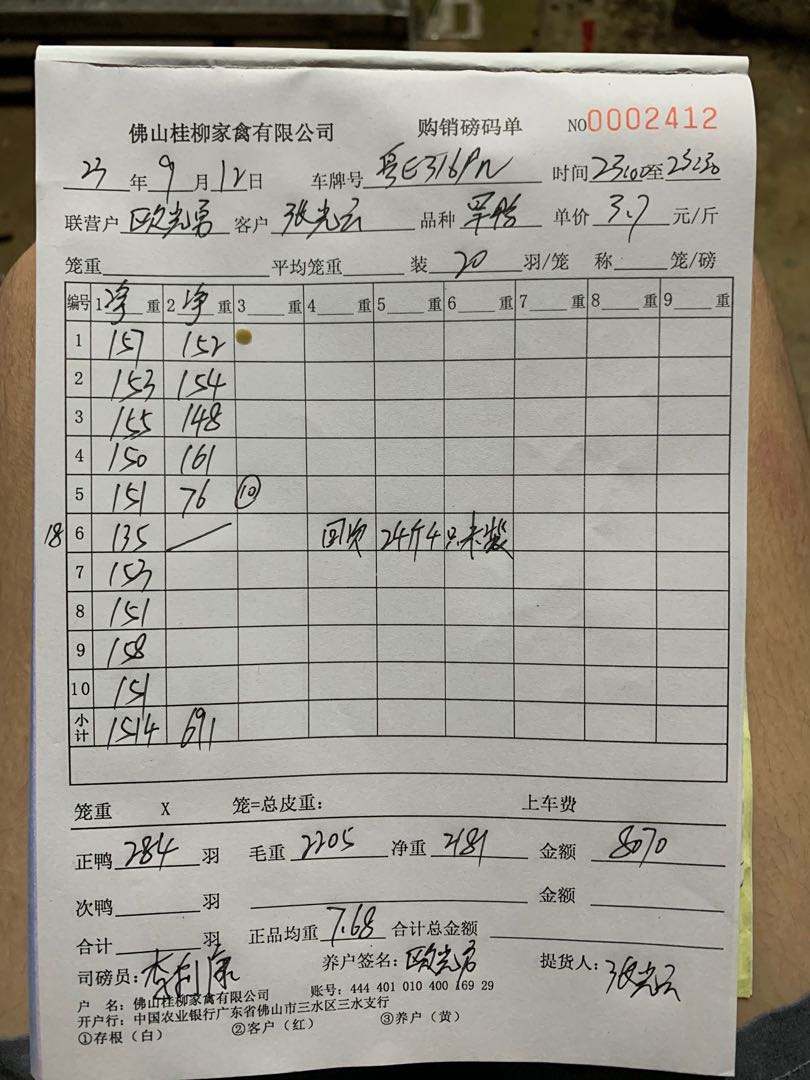 佛山桂柳家禽有限公司 购销磅码单 NO0002412
23年9月12日 车牌号 粤E316PN 时间23:00至23:30
联营户 欧光勇 客户 张光云 品种 单价 3.7 元/斤
笼重 平均笼重 装 20 羽/笼 称 笼/磅
编号 1净重 2净重 3 重 4 重 5 重 6 重 7 重 8 重 9 重
1 157 152
2 153 154
3 155 148
4 150 161
5 151 76 ⑩
18 6 135 / 回 24斤4只未装
7 153
8 151
9 158
10 151
小计 1514 691
笼重 X 笼=总皮重: 上车费
正鸭 284 羽 毛重 2205 净重 2181 金额 8070
次鸭 羽 金额
合计 羽 正品均重 7.68 合计总金额
司磅员: 李利康 养户签名: 欧光勇 提货人: 张光云
户 名: 佛山桂柳家禽有限公司 账号: 444 401 010 400 169 29
开户行: 中国农业银行广东省佛山市三水区三水支行
①存根(白) ②客户(红) ③养户(黄)